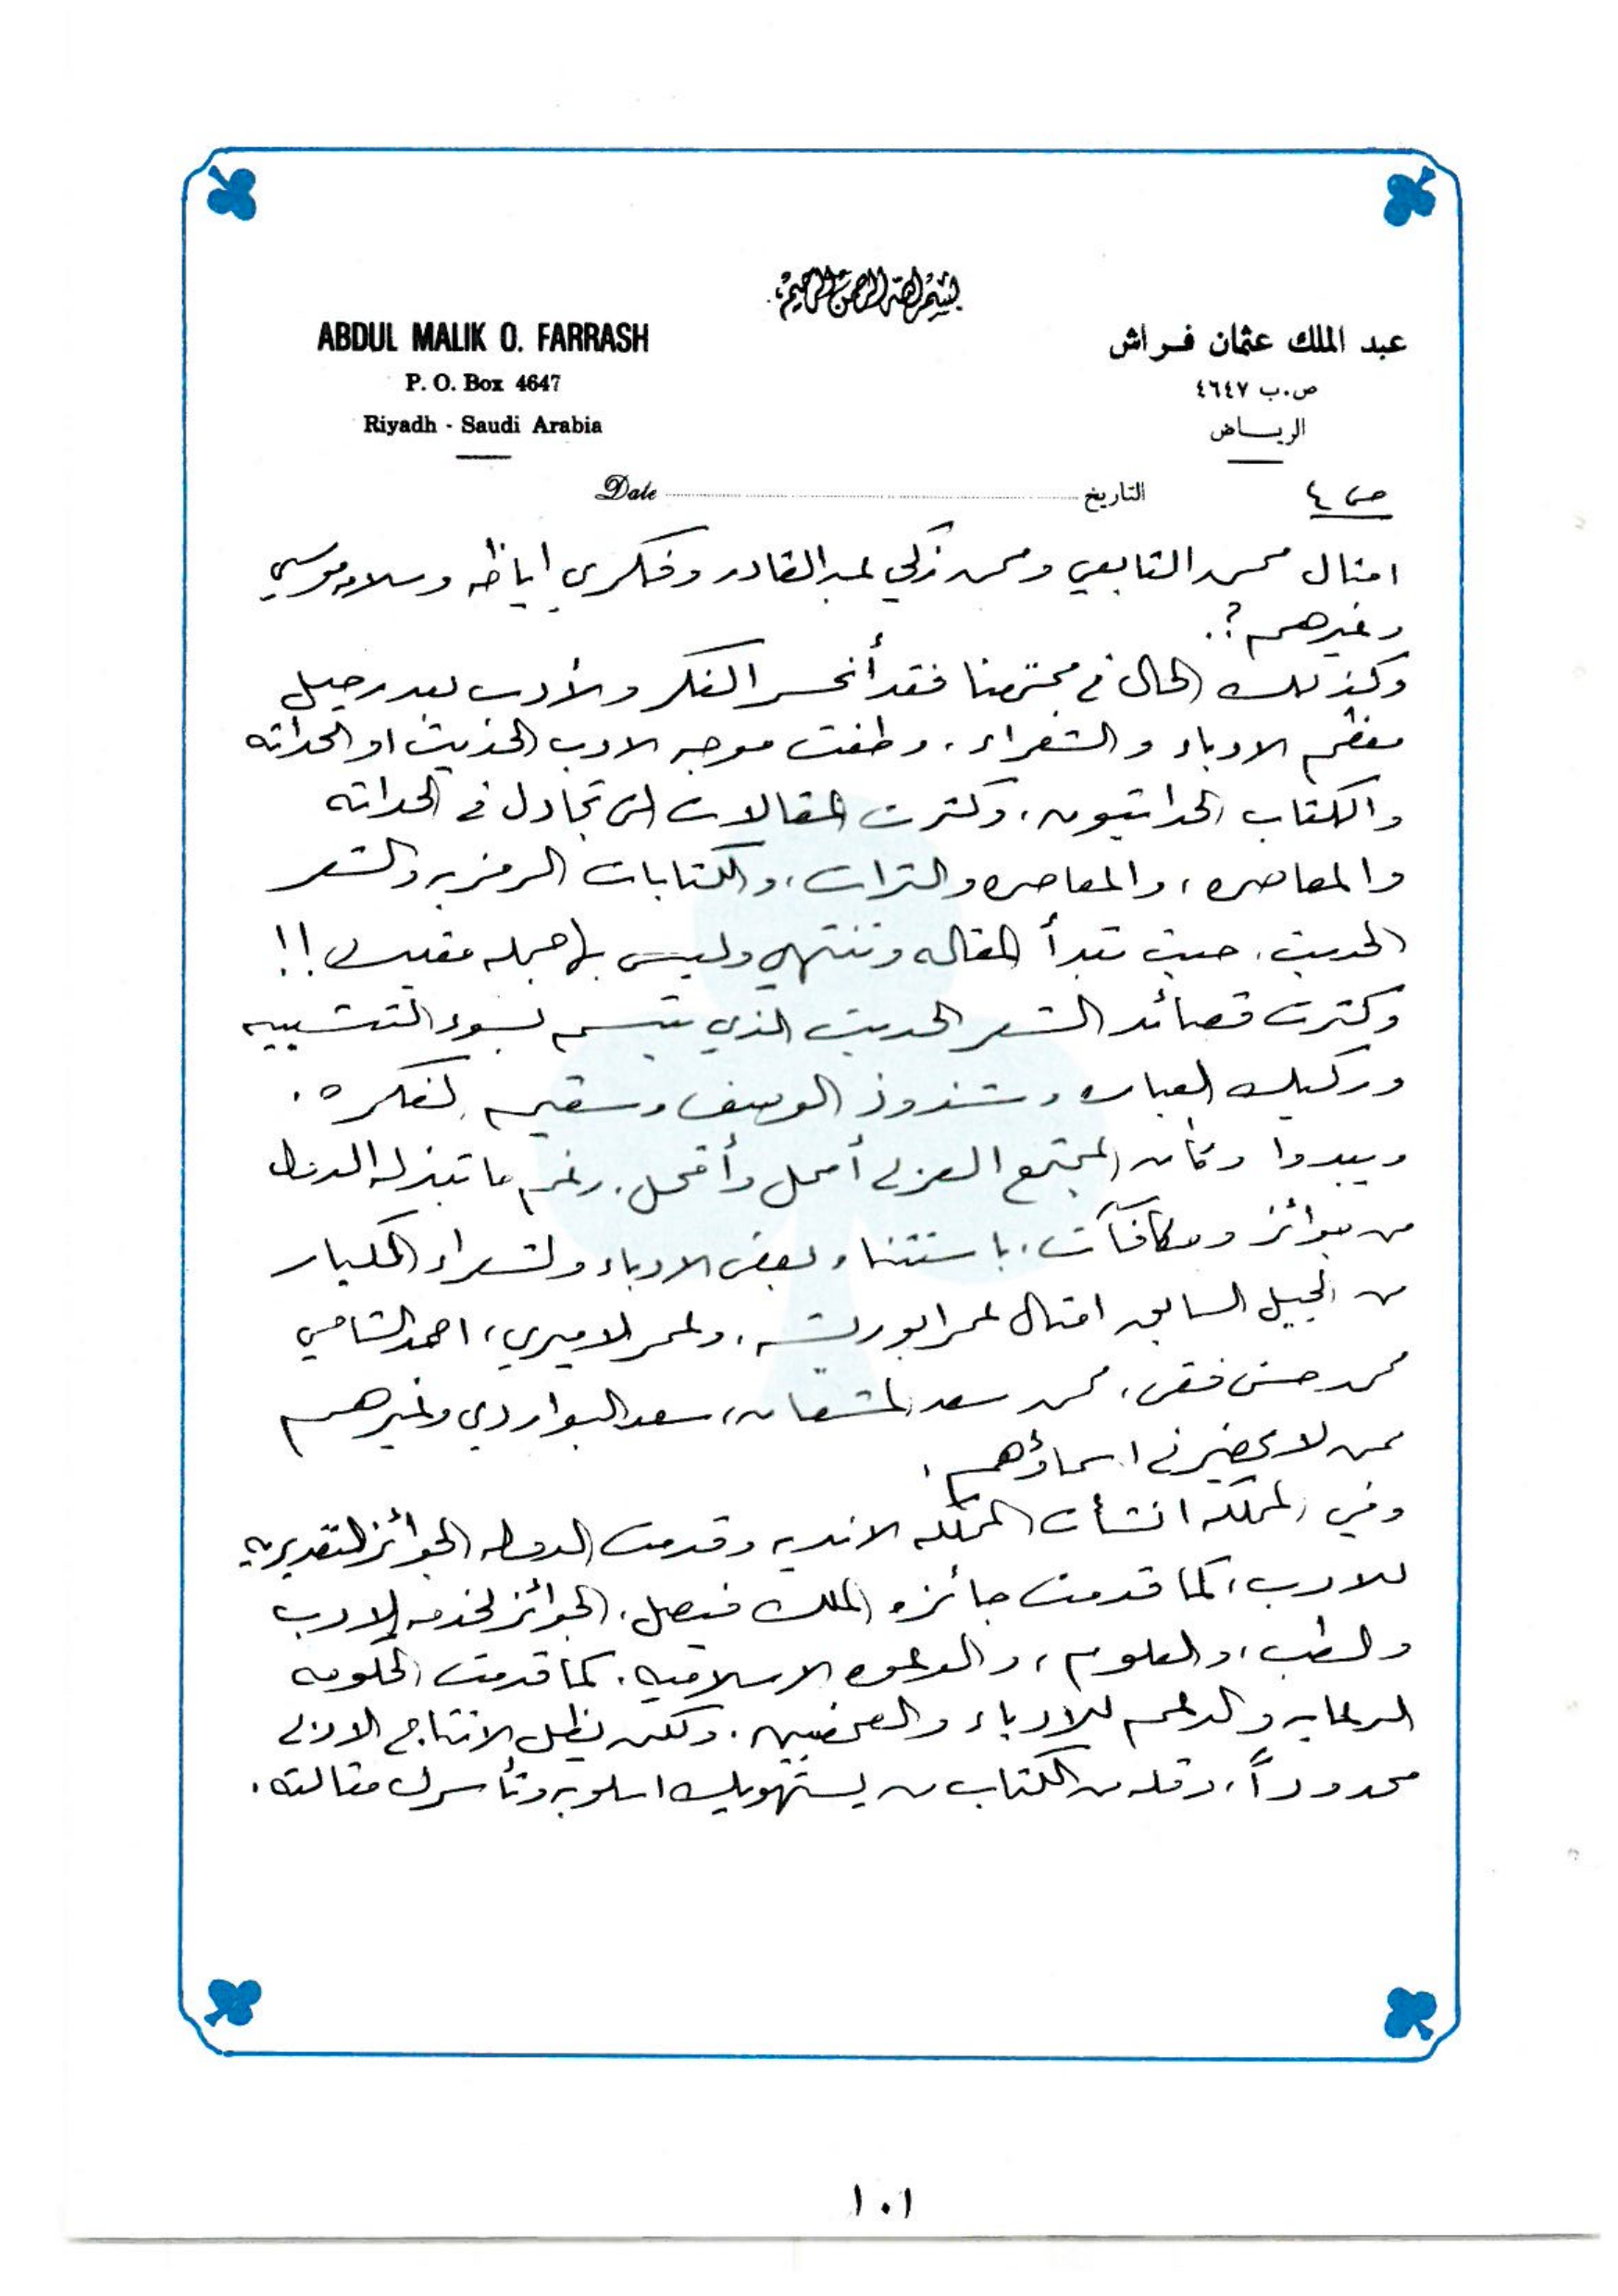 بسم الله الرحمن الرحيم
ABDUL MALIK O. FARRASH
عبد الملك عثمان فراش
P. O. Box 4647
ص.ب ٤٦٤٧
Riyadh - Saudi Arabia
الرياض
Date التاريخ
ص ٤
امثال محمد التابعي ومحمد زكي عبد القادر وفكري اباظه وسلامه موسى
وغيرهم ؟.
وكذلك الحال في مجتمعنا فقد أنحسر الفكر والأدب بعد رحيل
معظم الادباء والشعراء ، وطغت موجه الادب الحديث او الحداثه
والكتاب الحداثيون ، وكثرت المقالات التى تجادل في الحداثه
والمعاصره ، والمعاصره والتراث ، والكتابات الرمزيه والشعر
الحديث ، حيث تبدأ المقاله وتنتهي وليس بها جمله مفيده !!
وكثرت قصائد الشعر الحديث الذي يتسم بسوء التشبيه
وركيك العباره وشذوذ الوصف وسقيم الفكره .
ويبدوا وكأن المجتمع العربي أمحل وأقحل ، رغم ما تبذله الدوله
من جوائز ومكافآت ، باستثناء بعض الادباء والشعراء الكبار
من الجيل السابق امثال عمر ابو ريشه ، وعمر الاميري ، احمد الشامي
محمد حسن فقى ، محمد سعد المشعان ، سعد البواردي وغيرهم
ممن لا يحضرني اسماؤهم .
وفي المملكه انشأت المملكه الانديه وقدمت الدوله الجوائز التقديريه
للادب ، كما قدمت جائزه الملك فيصل ، الجوائز لخدمه الادب
والطب ، والعلوم ، والدعوه الاسلاميه ، كما قدمت الحكومه
الرعايه والدعم للادباء والصحفيين . ولكن يظل الانتاج الادبي
محدوداً ، وقله من الكتاب من يستهويك اسلوبه وتأسرك مقالته .
١٠١